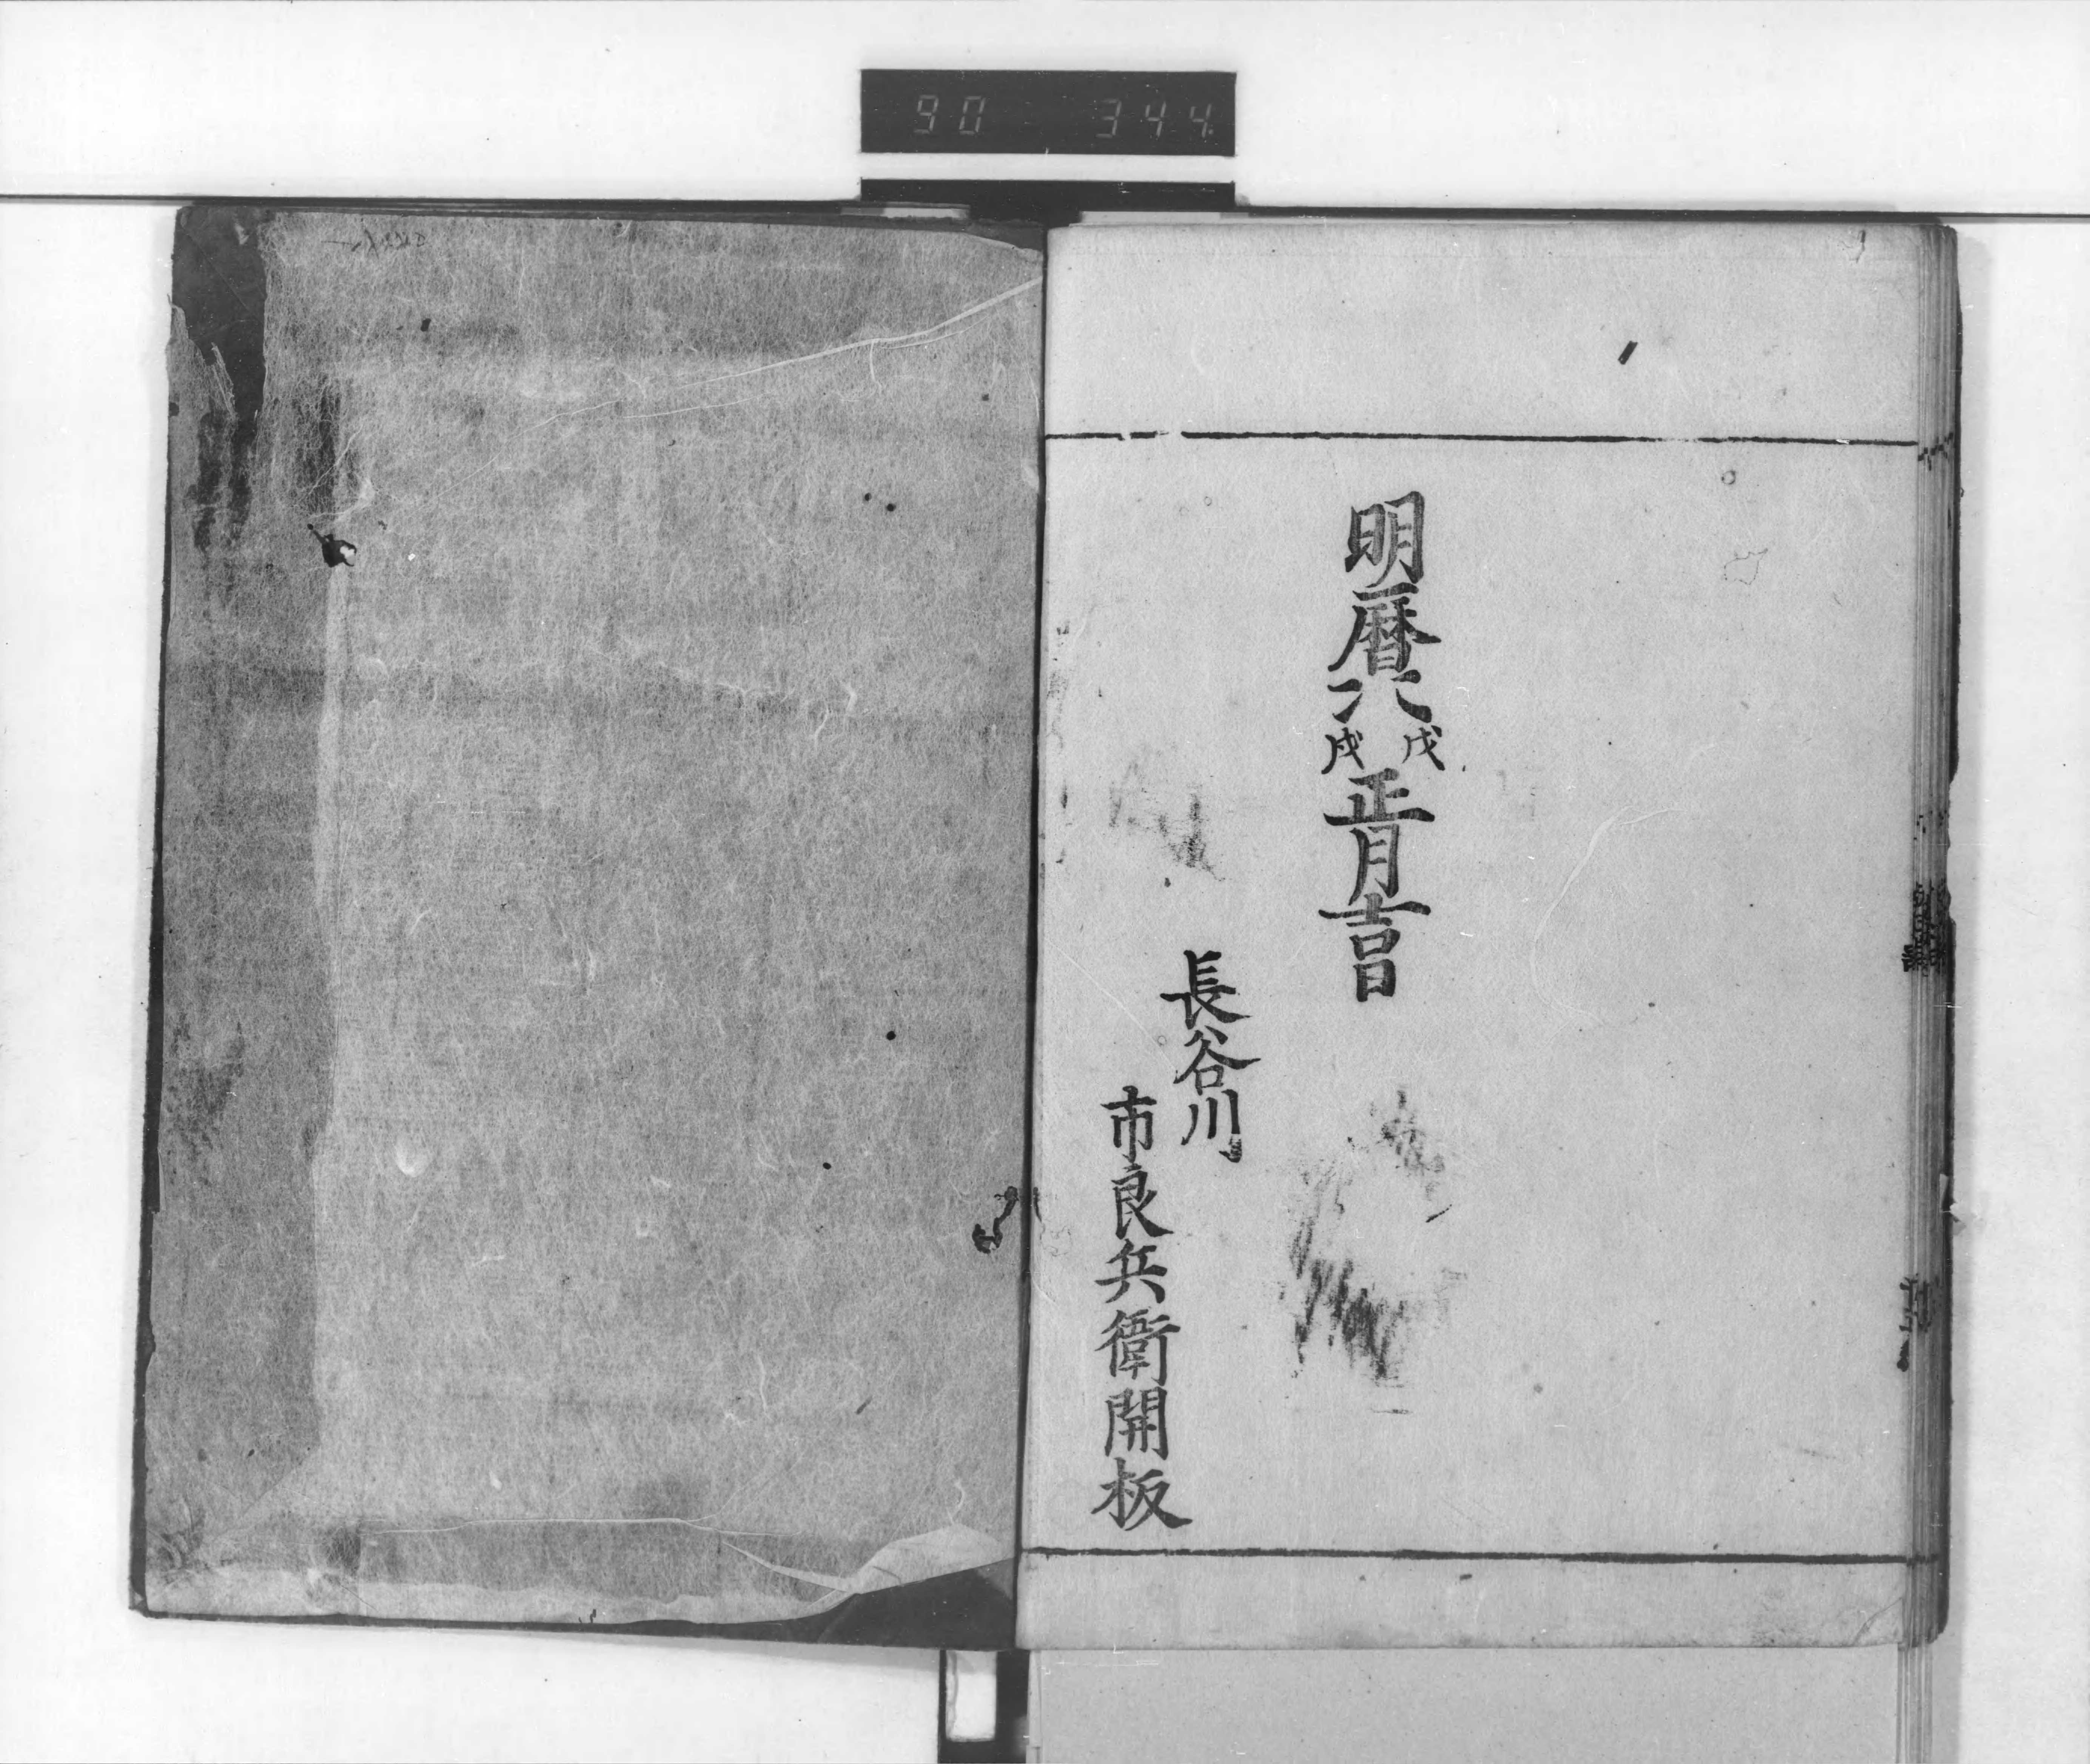 90 344
明暦戊戌正月吉日
長谷川
市良兵衛開板